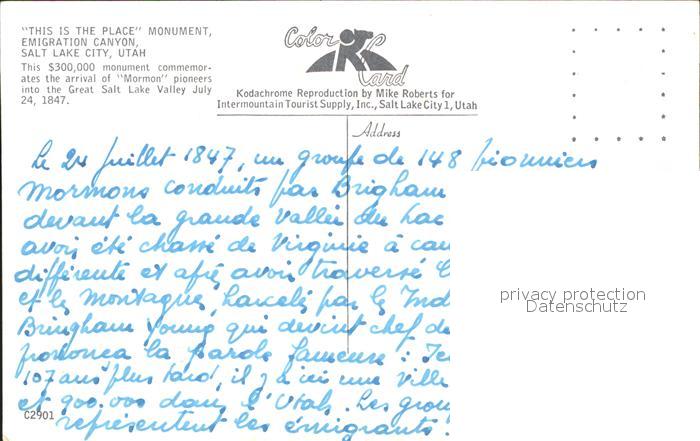 "THIS IS THE PLACE" MONUMENT,
EMIGRATION CANYON,
SALT LAKE CITY, UTAH
This $300,000 monument commemor-
ates the arrival of "Mormon" pioneers
into the Great Salt Lake Valley July
24, 1847.
Color
Card
Kodachrome Reproduction by Mike Roberts for
Intermountain Tourist Supply, Inc., Salt Lake City 1, Utah
Address
Le 24 juillet 1847, un groupe de 148 pionniers
Mormons conduits par Brigham
devant la grande vallée du Lac
avoir été chassé de Virginie à cau
différente et après avoir traversé l
et les Montagnes, harcelés par les Ind
Bringham Young qui devint chef de
prononca la parole fameuse :
107 ans plus tard, il y a ici une ville
et 900.000 dans l'Utah. Les grou
représentent les émigrants
C2901
privacy protection
Datenschutz